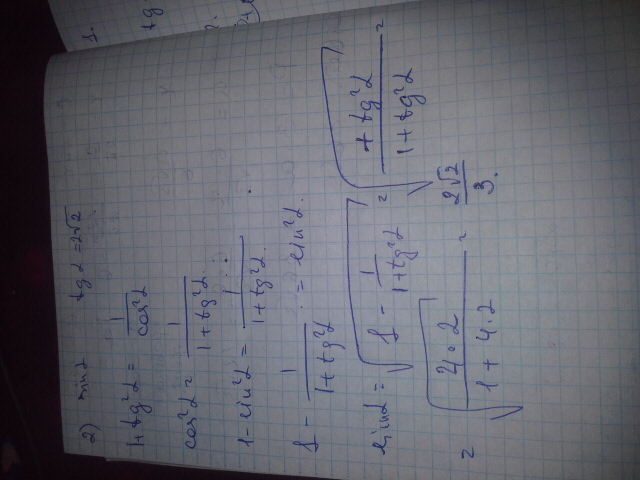 2) sin α tg α = 2√2
1 + tg²α = 1/cos²α
cos²α = 1/(1 + tg²α)
1 - sin²α = 1/(1 + tg²α).
1 - 1/(1 + tg²α) = sin²α.
sin α = √(1 - 1/(1 + tg²α)) = √(+ tg²α/(1 + tg²α)) =
= √(4·2/(1 + 4·2)) = 2√2/3.
1.
tg